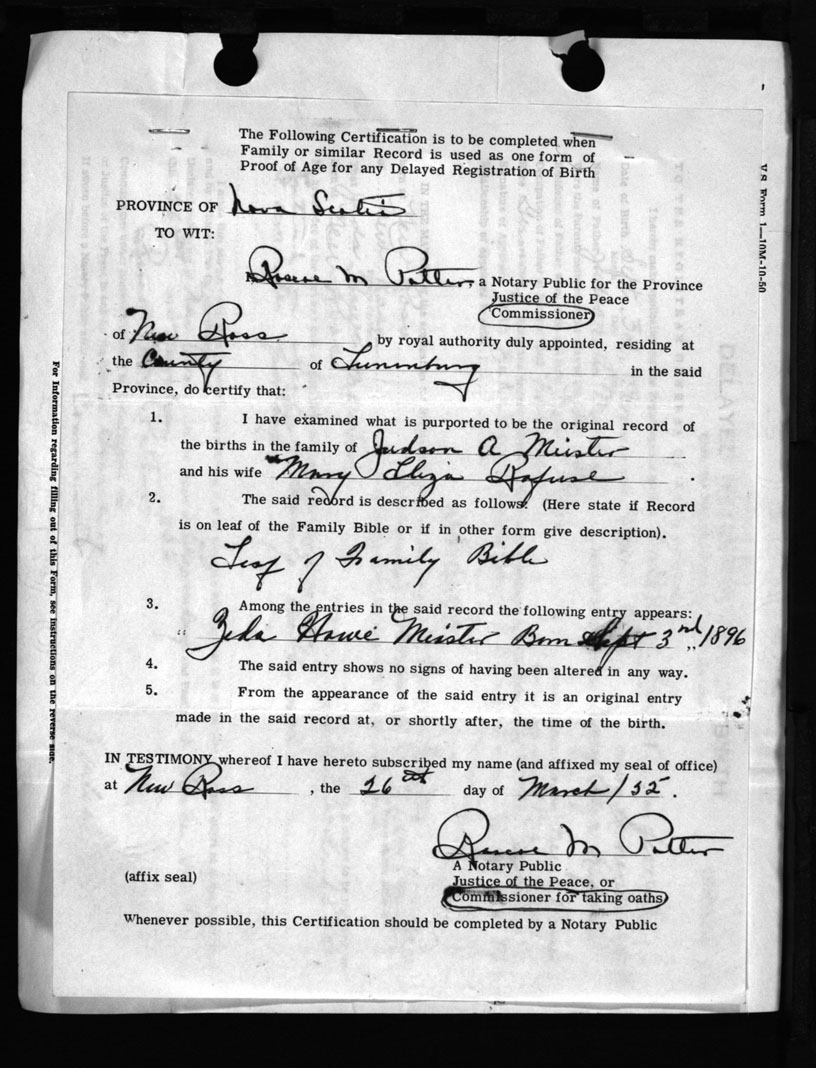 The Following Certification is to be completed when
Family or similar Record is used as one form of
Proof of Age for any Delayed Registration of Birth
V.S. Form 1—10M-10-50
PROVINCE OF Nova Scotia
TO WIT:
Roscoe M Potter, a Notary Public for the Province
Justice of the Peace
Commissioner
of New Ross by royal authority duly appointed, residing at
the County of Lunenburg in the said
Province, do certify that:
1. I have examined what is purported to be the original record of
the births in the family of Judson A Meister
and his wife Mary Eliza Rafuse .
2. The said record is described as follows: (Here state if Record
is on leaf of the Family Bible or if in other form give description).
Leaf of Family Bible
3. Among the entries in the said record the following entry appears:
" Zeda Howe Meister Born Sept 3rd, 1896
4. The said entry shows no signs of having been altered in any way.
5. From the appearance of the said entry it is an original entry
made in the said record at, or shortly after, the time of the birth.
IN TESTIMONY whereof I have hereto subscribed my name (and affixed my seal of office)
at New Ross , the 26th day of March / 52 .
Roscoe M Potter
A Notary Public
(affix seal) Justice of the Peace, or
Commissioner for taking oaths
Whenever possible, this Certification should be completed by a Notary Public
For Information regarding filling out of this Form, see instructions on the reverse side.